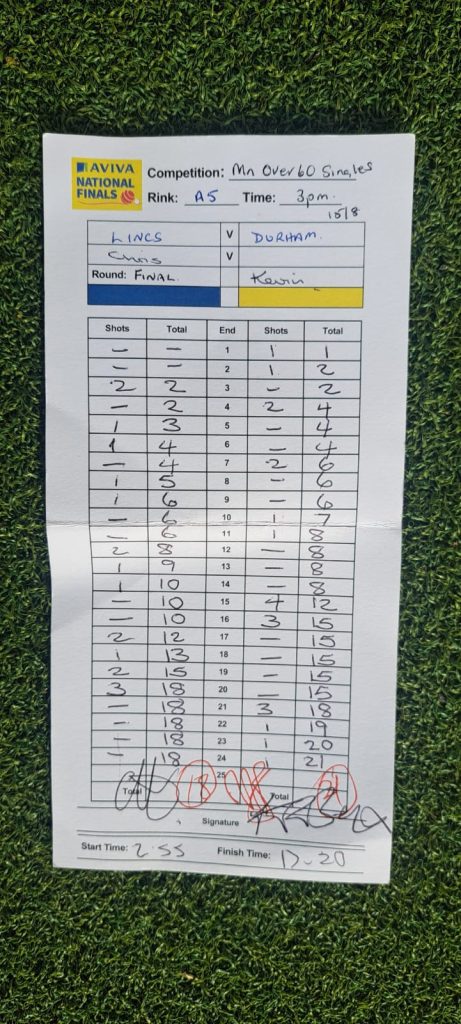 AVIVA
NATIONAL
FINALS
Competition: Mn Over 60 Singles
Rink: A5 Time: 3pm.
15/8
LINCS V DURHAM.
Chris V
Round: FINAL. Kevin
Shots Total End Shots Total
— — 1 1 1
— — 2 1 2
2 2 3 — 2
— 2 4 2 4
1 3 5 — 4
1 4 6 — 4
— 4 7 2 6
1 5 8 — 6
1 6 9 — 6
— 6 10 1 7
— 6 11 1 8
2 8 12 — 8
1 9 13 — 8
1 10 14 — 8
— 10 15 4 12
— 10 16 3 15
2 12 17 — 15
1 13 18 — 15
2 15 19 — 15
3 18 20 — 15
— 18 21 3 18
— 18 22 1 19
— 18 23 1 20
— 18 24 1 21
25
Total 18 Total 21
Signature
Start Time: 2.55 Finish Time: